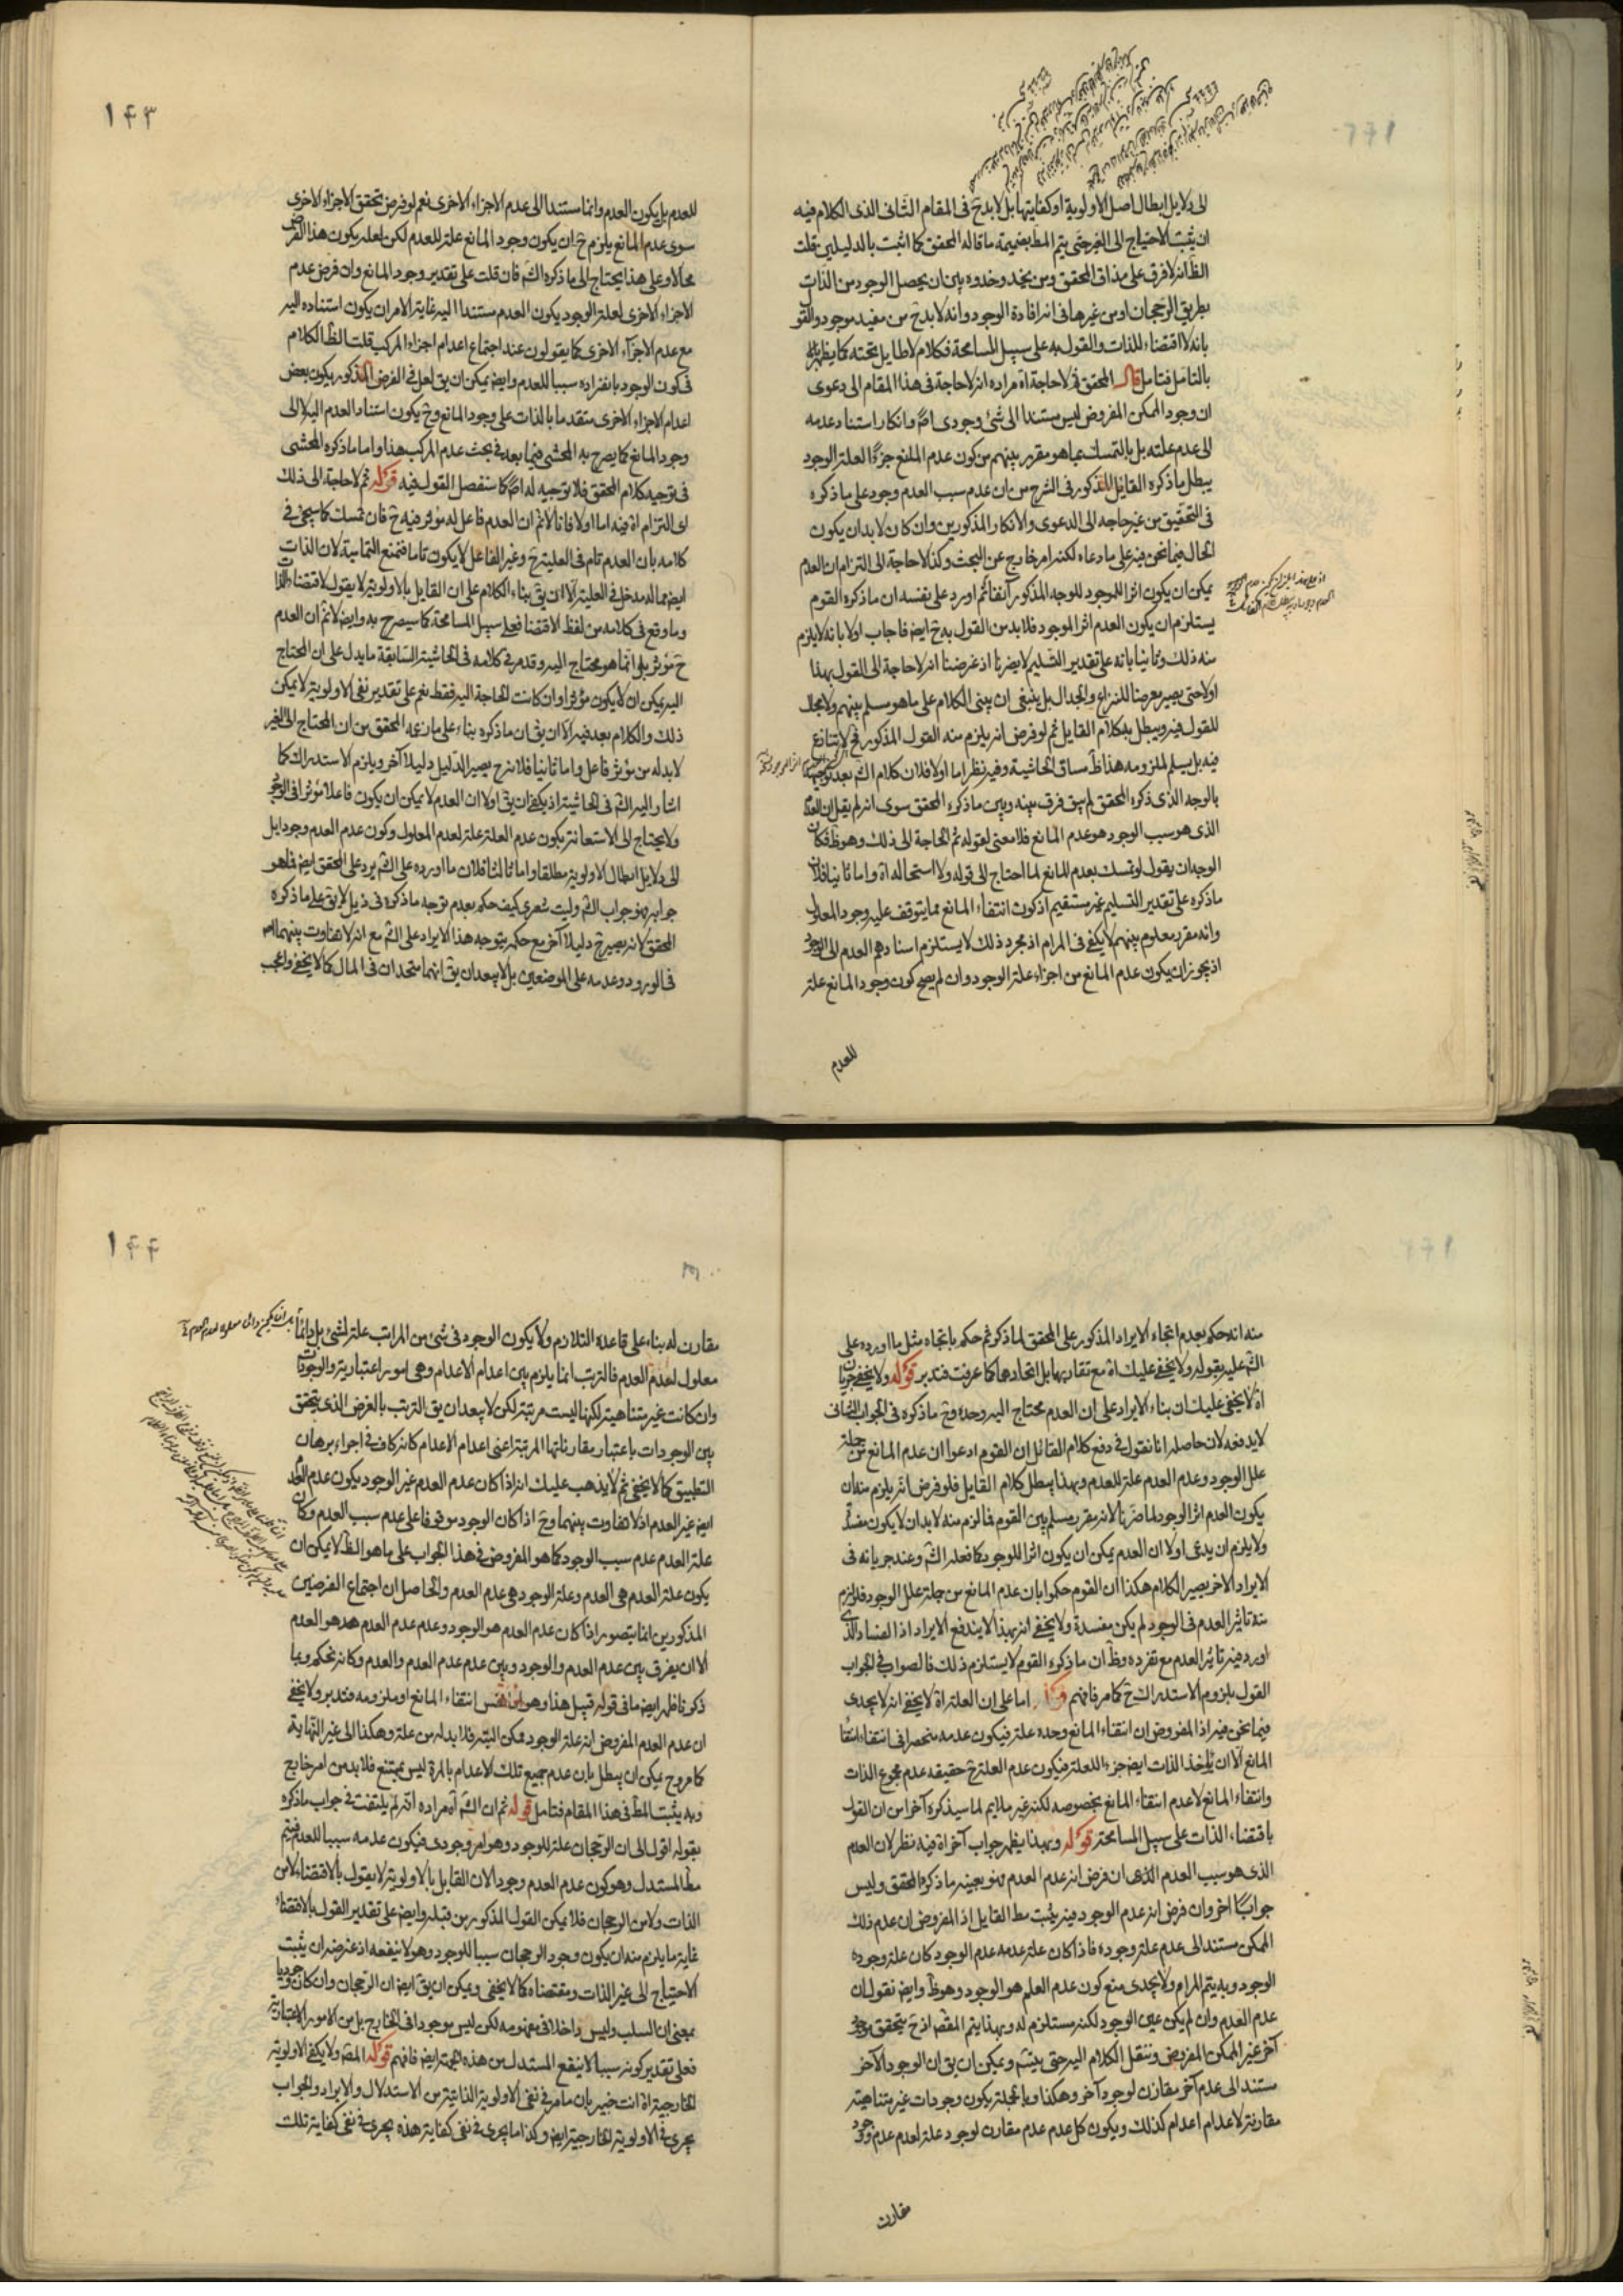 الى دلايل ابطال اصل الاولوية او كفايتها بل لا بد ح فى المقام الثانى الذى الكلام فيه
ان يثبت الاحتياج الى الغير حتى يتم المط بضميمة ما قاله المحقق كما اثبت بالدليلين قلت
الظ انه لا فرق على مذاق المحقق ومن يحذو حذوه بين ان يحصل الوجود من الذات
بطريق الرجحان او من غيرها فى انه افادة الوجود وانه لا بد ح من مفيد موجود والقو
بانه لا اقتضاء للذات والقول به على سبيل المسامحة فكلام لا طايل تحته كما يظهر
بالتامل فتامل قال المحقق فلا حاجة اه مراده انه لا حاجة فى هذا المقام الى دعوى
ان وجود الممكن المفروض ليس مستندا الى شئ وجودى اصلا وانكار استناد عدمه
الى عدم علته بل بالتمسك بما هو مقرر بينهم من كون عدم المانع جزءا لعلة الوجود
يبطل ما ذكره القايل المذكور فى الشرح من ان عدم سبب العدم وجود على ما ذكره
فى التحقيق من غير حاجه الى الدعوى والانكار المذكورين وان كان لا بد ان يكون
الحال فيما نحن فيه على ما دعاه لكنه امر خارج عن البحث وكذا لا حاجة الى التزام ان العدم
يمكن ان يكون اثرا للموجود للوجه المذكور آنفا ثم اورد على نفسه ان ما ذكره القوم
يستلزم ان يكون العدم اثرا لموجود فلا بد من القول به ح ايضا فاجاب اولا بانه لا يلزم
منه ذلك وثانيا بانه على تقدير التسليم لا يضرنا اذ غرضنا انه لا حاجة الى القول بهذا
اولا حتى يصير معرضا للنزاع والجدال بل ينبغى ان يبنى الكلام على ما هو مسلم بينهم ولا مجال
للقول فيه ويبطل به كلام القايل ثم لو فرض انه يلزم منه القول المذكور فح لا يتنازع
فيه بل يسلم لملزومه هذا ظ مساق الحاشية وفيه نظر اما اولا فلان كلام الش بعد توجيهه
بالوجه الذى ذكره المحقق لم يبق فرق بينه وبين ما ذكره المحقق سوى انه لم يقل ان العدم
الذى هو سبب الوجود هو عدم المانع فلا معنى لقوله ثم الحاجة الى ذلك وهو ظ فكان
الوجه ان يقول لو تمسك بعدم المانع لما احتاج الى قوله ولا استحالة اه واما ثانيا فلان
ماذكره على تقدير التسليم غير مستقيم اذ كون انتفاء المانع مما يتوقف عليه وجود المعلول
وانه مقرر معلوم بينهم لا يكفى فى المرام اذ مجرد ذلك لا يستلزم اسنادهم العدم الى الوجود
اذ يجوز ان يكون عدم المانع من اجزاء علة الوجود وان لم يصح كون وجود المانع علة
للعدم
١٤٣
للعدم بل يكون العدم دائما مستندا الى عدم الاجزاء الاخرى نعم لو فرض تحقق الاجزاء الاخرى
سوى عدم المانع يلزم ح ان يكون وجود المانع علة للعدم لكن لعله يكون هذا الفرض
محالا وعلى هذا يحتاج الى ما ذكره الش فان قلت على تقدير وجود المانع وان فرض عدم
الاجزاء الاخرى لعلة الوجود يكون العدم مستندا اليه غاية الامر ان يكون استناده اليه
مع عدم الاجزآء الاخرى كما يقولون عند اجتماع اعدام اجزاء المركب قلت الظ ان الكلام
فى كون الوجود بانفراده سببا للعدم وايضا يمكن ان يق لعل فى الفرض المذكور يكون بعض
اعدام الاجزاء الاخرى متقدما بالذات على وجود المانع وح يكون استناد العدم اليه لا الى
وجود المانع كما يصرح به المحشى فيما بعد فى بحث عدم المركب هذا واما ما ذكره المحشى
فى توجيه كلام المحقق فلا توجيه له اصلا كما سنفصل القول فيه قوله ثم لا حاجة الى ذلك
اى التزام اه فيه اما اولا فانا لا نم ان العدم فاعل له مؤثر فيه ح فان تمسك كما سيجئ فى
كلامه بان العدم تام فى العلية ح وغير الفاعل لا يكون تاما فنمنع التمامية لان الذات
ايضا مما له مدخل فى العلية الا ان يق بناء الكلام على ان القايل بالاولوية لا يقول لاقتضاء الذات
وما وقع فى كلامه من لفظ الاقتضا فعلى سبيل المسامحة كما سيصرح به وايضا لا نم ان العدم
ح مؤثر بل انما هو محتاج اليه وقد مر فى كلامه فى الحاشية السابقة ما يدل على ان المحتاج
اليه يمكن ان لا يكون مؤثرا وان كانت الحاجة اليه فقط نعم على تقدير نفى الاولوية لا يمكن
ذلك والكلام بعد فيه الا ان يق ان ما ذكره بناء على ما زعمه المحقق من ان المحتاج الى الغير
لا بد له من مؤثر فاعل واما ثانيا فلانه ح يصير الدليل دليلا آخر ويلزم الاستدراك كما
اشار اليه الش فى الحاشية اذ يكفى ان يق اولا ان العدم لا يمكن ان يكون فاعلا مؤثرا فى الوجود
ولا يحتاج الى الاستعانة بكون عدم العلة علة لعدم المعلول وكون عدم العدم وجودا بل
الى دلايل ابطال الاولوية مطلقا واما ثالثا فلان ما اورده على الش يرد على المحقق ايضا فما هو
جوابه فهو جواب الش وليت شعرى كيف حكم بعدم توجه ما ذكره فى ذيل لا يق على ما ذكره
المحقق لانه يصير ح دليلا آخر مع حكمه بتوجه هذا الايراد على الش مع انه لا تفاوت بينهما
فى الورود وعدمه على الموضعين بل لا يبعد ان يق انهما متحدان فى المال كما لا يخفى واعجب
منه انه حكم بعدم اتجاه الايراد المذكور على المحقق لما ذكر ثم حكم باتجاه مثل ما اورده على
الش عليه بقوله ولا يخفى عليك اه مع تقاربهما بل اتحادهما كما عرفت فتدبر قوله ولا يخفى جريان
اه لا يخفى عليك ان بناء الايراد على ان العدم محتاج اليه وحده وح ما ذكره فى الجواب الثانى
لا يدفعه لان حاصله انا نقول فى دفع كلام القائل ان القوم ادعوا ان عدم المانع من جملة
علل الوجود وعدم العدم علة للعدم وبهذا يبطل كلام القايل فلو فرض انه يلزم منه ان
يكون العدم اثر الوجود لما ضرنا لانه مقرر مسلم بين القوم فما لزم منه لا بد ان لا يكون مفسدة
ولا يلزم ان يدعى اولا ان العدم يمكن ان يكون اثرا للوجود كما فعله الش وعند جريانه فى
الايراد الاخر يصير الكلام هكذا ان القوم حكموا بان عدم المانع من جملة علل الوجود فلو لزم
منه تاثير العدم فى الوجود لم يكن مفسدة ولا يخفى انه بهذا لا يندفع الايراد اذ الفساد الذى
اورد فيه تاثير العدم مع تفرده وظ ان ما ذكره القوم لا يستلزم ذلك فالصواب فى الجواب
القول بلزوم الاستدراك ح كما مر فافهم قوله اما على ان العلة اه لا يخفى انه لا يجدى
فيما نحن فيه اذ المفروض ان انتفاء المانع وحده علة فيكون عدمه منحصرا فى انتفاء انتفاء
المانع الا ان يؤخذ الذات ايضا جزءا للعلة فيكون عدم العلة ح حقيقه عدم مجموع الذات
وانتفاء المانع لا عدم انتفاء المانع بخصوصه لكنه غير ملايم لما سيذكره آخرا من ان القول
باقتضاء الذات على سبيل المسامحة قوله وبهذا يظهر جواب آخر اه فيه نظر لان العدم
الذى هو سبب العدم الذى ان فرض انه عدم العدم فهو بعينه ما ذكره المحقق وليس
جوابا اخر وان فرض انه عدم الوجود فيه يثبت مط القايل اذ المفروض ان عدم ذلك
الممكن مستند الى عدم علة وجوده فاذا كان علة عدمه عدم الوجود كان علة وجوده
الوجود وبه يتم المرام ولا يجدى منع كون عدم العلم هو الوجود وهو ظ وايضا نقول ان
عدم العدم وان لم يكن عين الوجود لكنه مستلزم له وبهذا يتم المقصد اذ ح يتحقق موجود
آخر غير الممكن المفروض وننقل الكلام اليه حتى يتم ويمكن ان يق ان الوجود الآخر
مستند الى عدم آخر مقارن لوجود آخر وهكذا وبالجملة يكون وجودات غير متناهية
مقارنة لاعدام اعدام كذلك ويكون كل عدم عدم مقارن لوجود علة لعدم عدم وجود
مقارن
١٤٤
مقارن له بناء على قاعدة التلازم ولا يكون الوجود فى شئ من المراتب علة لشئ بل دائما
معلول لعدم العدم فالترتب انما يلزم بين اعدام الاعدام وهى امور اعتبارية والوجودات
وان كانت غير متناهية لكنها ليست مرتبة لكن لا يبعد ان يق الترتب بالعرض الذى يتحقق
بين الوجودات باعتبار مقارناتها المرتبة اعنى اعدام الاعدام كانه كاف فى اجراء برهان
التطبيق كما لا يخفى ثم لا يذهب عليك انه اذا كان عدم العدم غير الوجود يكون عدم العدم
ايضا غير العدم اذ لا تفاوت بينهما وح اذا كان الوجود موقوفا على عدم سبب العدم وكان
علة العدم عدم سبب الوجود كما هو المفروض فى هذا الجواب على ما هو الظ لا يمكن ان
يكون علة العدم هى العدم وعلة الوجود هى عدم العدم والحاصل ان اجتماع الفرضين
المذكورين انما يتصور اذا كان عدم العدم هو الوجود وعدم عدم العدم هو العدم
الا ان يفرق بين عدم العدم والوجود وبين عدم عدم العدم والعدم وكانه تحكم وبما
ذكر فاظهر ايضا ما فى قوله قبيل هذا وهو نفس انتفاء المانع او ملزومه فتدبر ولا يخفى
ان عدم العدم المفروض انه علة الوجود ممكن البتة فلا بد له من علة وهكذا الى غير النهاية
كما مر وح يمكن ان يبطل بان عدم جميع تلك الاعدام بالمرة ليس بممتنع فلا بد من امر خارج
وبه يثبت المط فى هذا المقام فتامل قوله ثم ان الش اه مراده انه لم يلتفت فى جواب ما ذكره
بقوله اقول الى ان الرجحان علة للوجود وهو امر وجودى فيكون عدمه سببا للعدم فيتم
مط المستدل وهو كون عدم العدم وجودا لان القايل بالاولوية لا يقول بالاقتضاء لا من
الذات ولا من الرجحان فلا يمكن القول المذكور من قبله وايضا على تقدير القول بالاقتضاء
غاية ما يلزم منه ان يكون وجود الرجحان سببا للوجود وهو لا ينفعه اذ غرضه ان يثبت
الاحتياج الى غير الذات ومقتضاه كما لا يخفى ويمكن ان يق ايضا ان الرجحان وان كان وجوديا
بمعنى ان السلب وليس داخلا فى مفهومه لكن ليس موجودا فى الخارج بل من الامور الاعتبارية
فعلى تقدير كونه سببا لا ينفع المستدل من هذه الجهة ايضا فافهم قوله المص ولا يكفى الاولوية
الخارجية اه انت خبير بان ما مر فى نفى الاولوية الذاتية من الاستدلال والايراد والجواب
يجرى فى الاولوية الخارجية ايضا وكذا ما يجرى فى نفى كفاية هذه يجرى فى نفى كفاية تلك